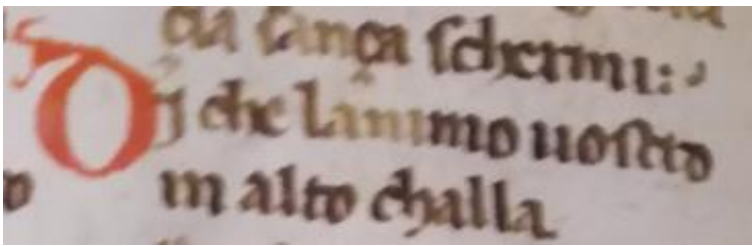 cia sança schermi:
Dj che lanimo uostro
in alto challa